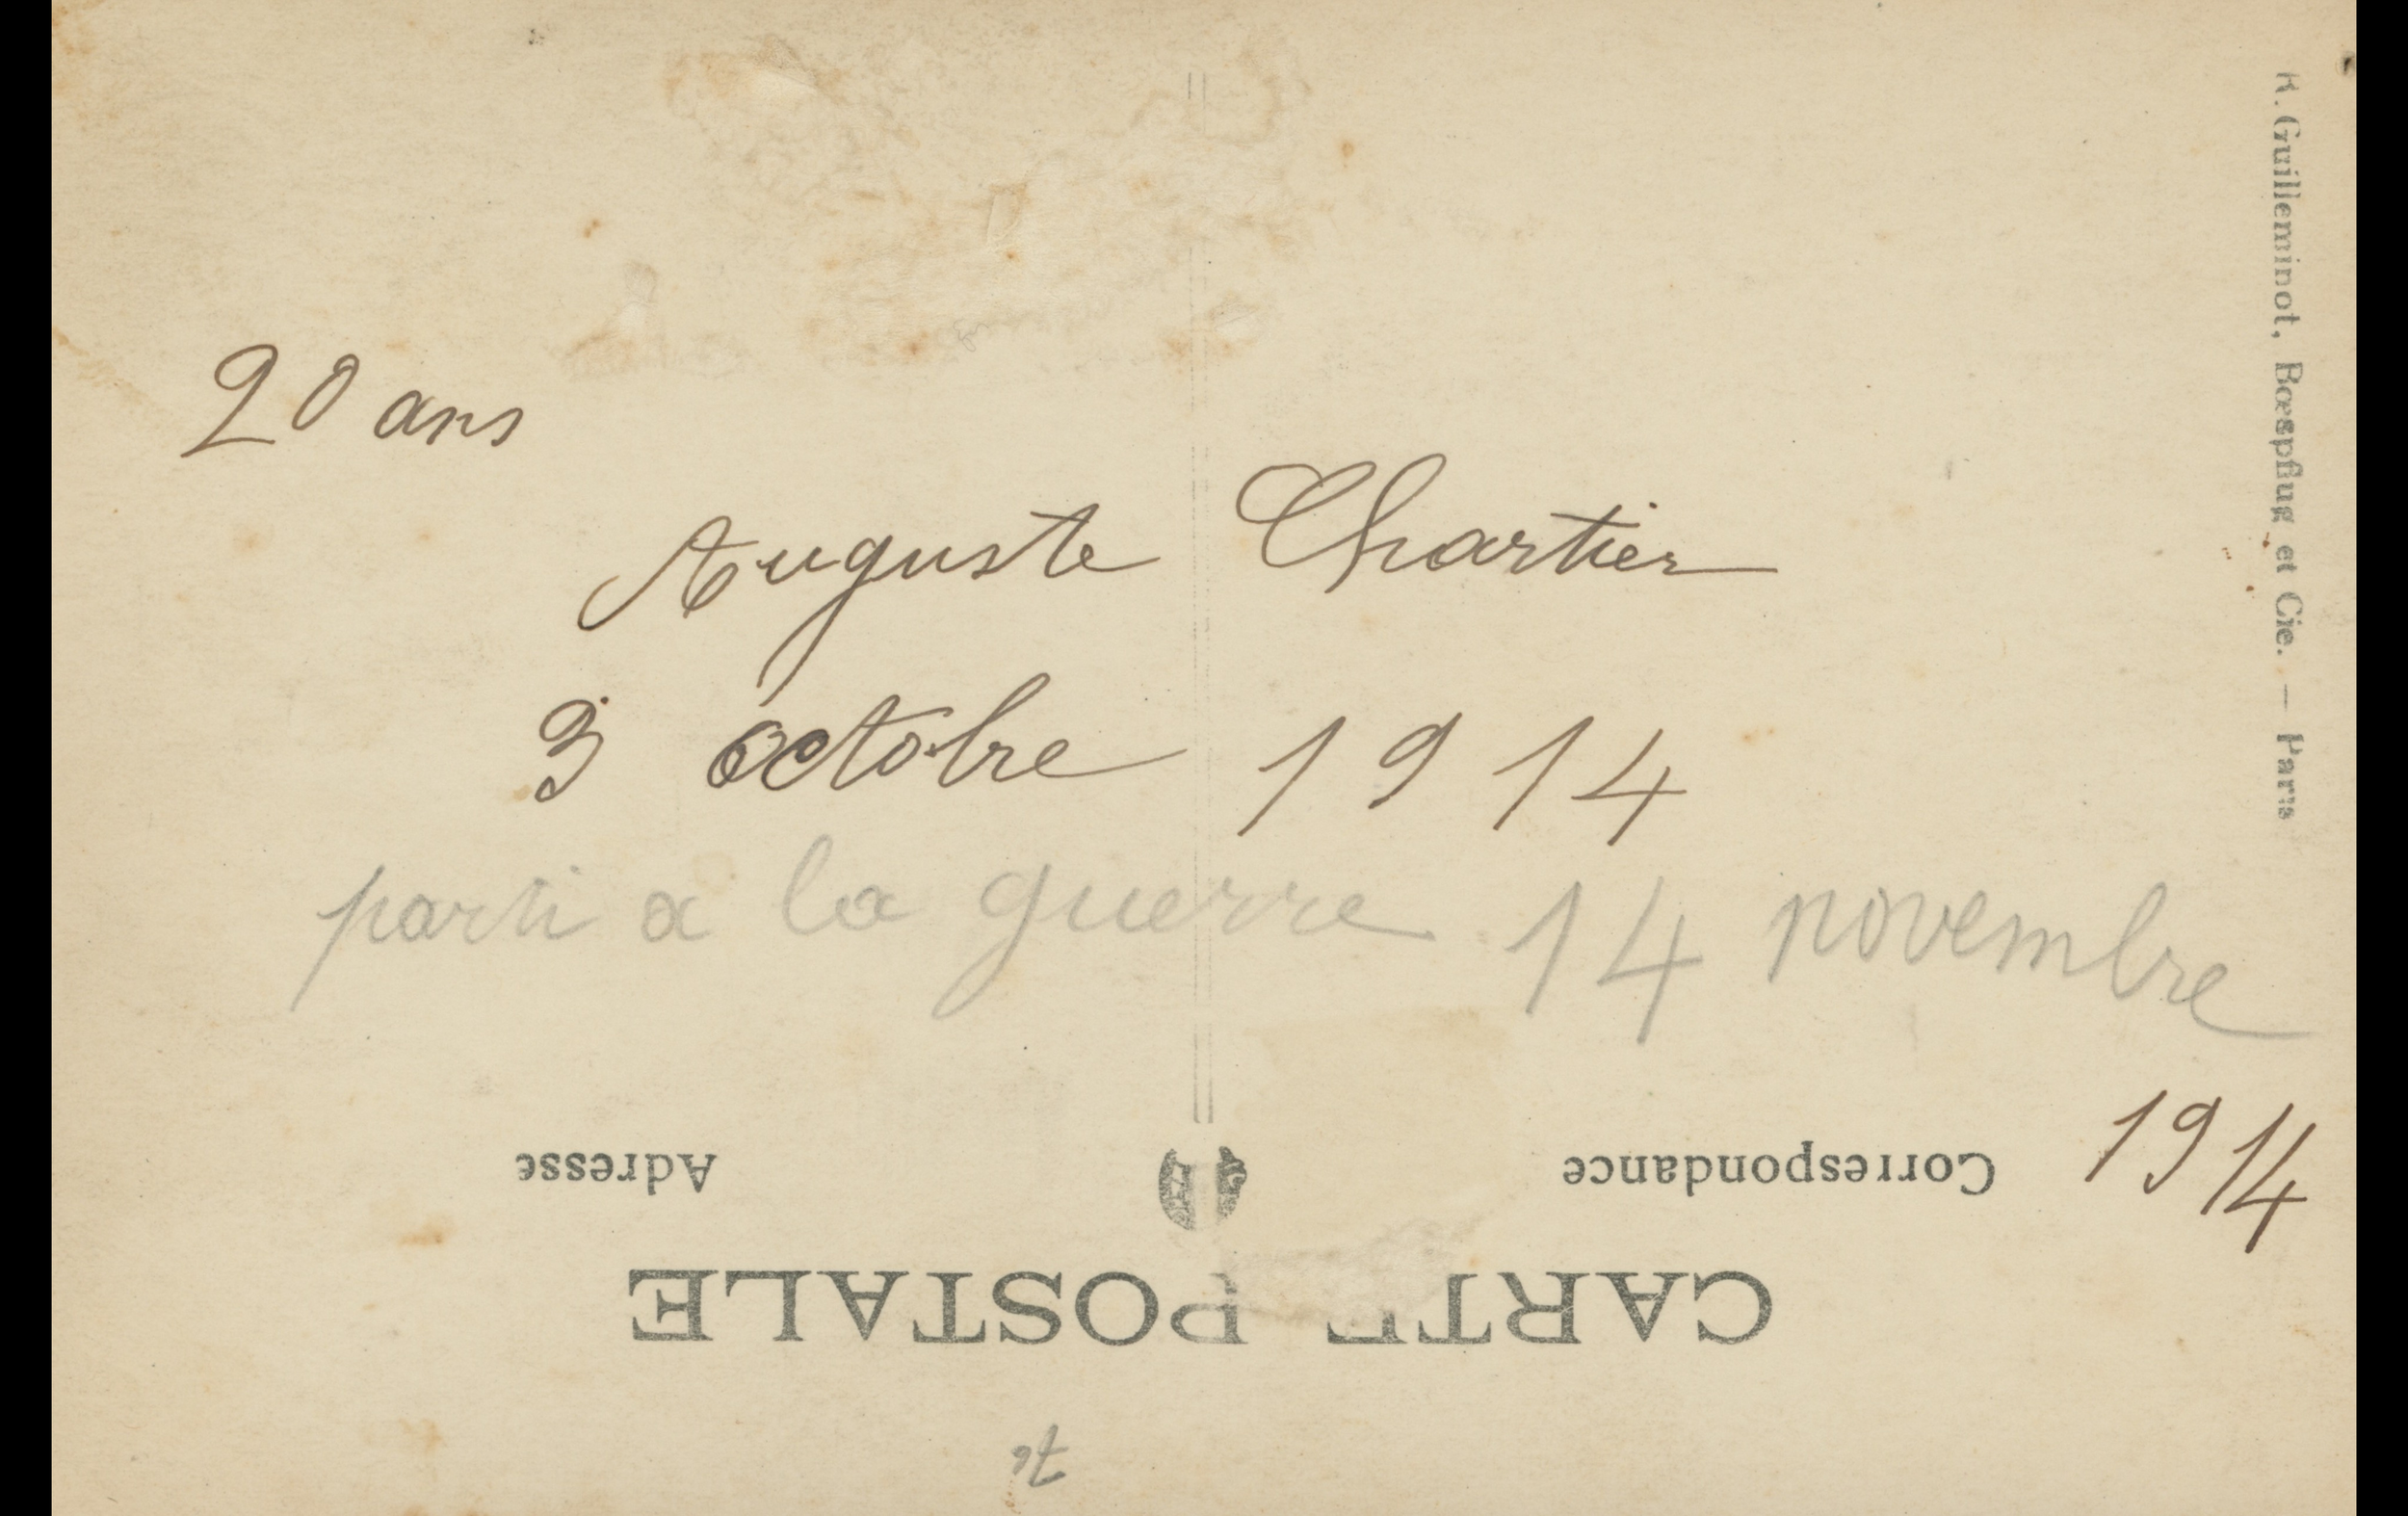 20 ans
Auguste Chartier
3 octobre 1914
parti a la guerre 14 novembre
1914
Correspondance
Adresse
CARTE POSTALE
R. Guilleminot, Bœspflug et Cie. — Paris